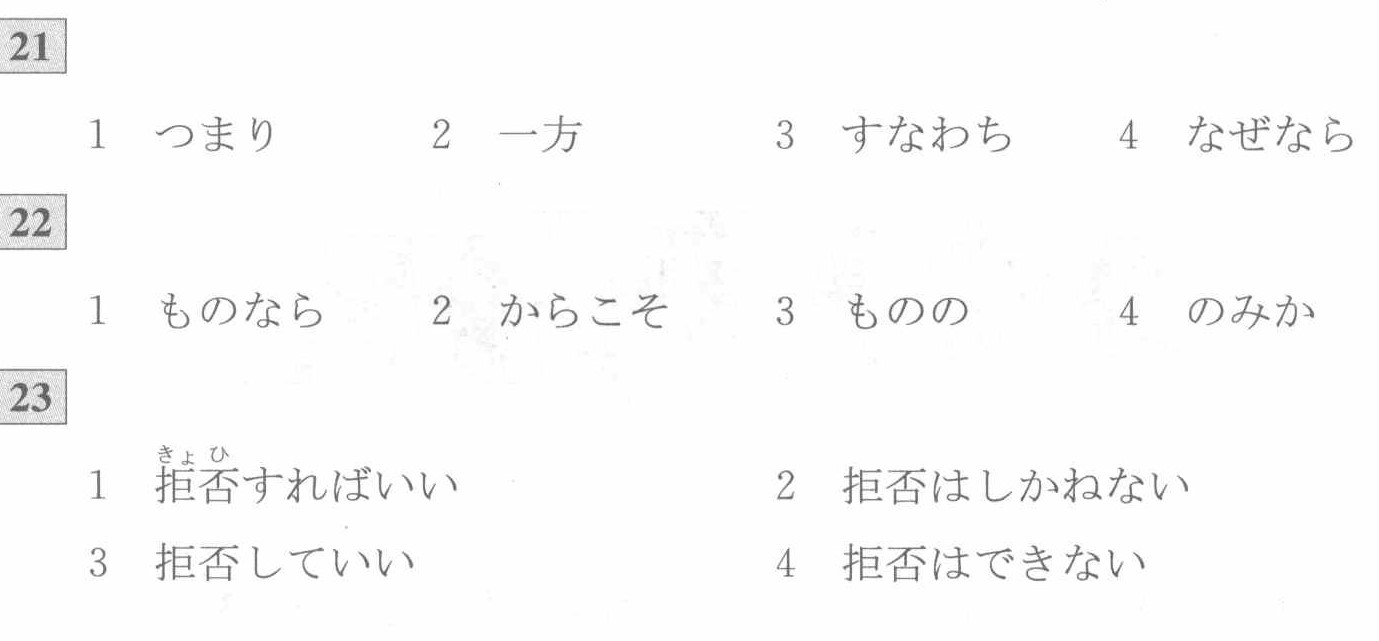 21
1 つまり 2 一方 3 すなわち 4 なぜなら
22
1 ものなら 2 からこそ 3 ものの 4 のみか
23
きょ ひ
1 拒否すればいい 2 拒否はしかねない
3 拒否していい 4 拒否はできない